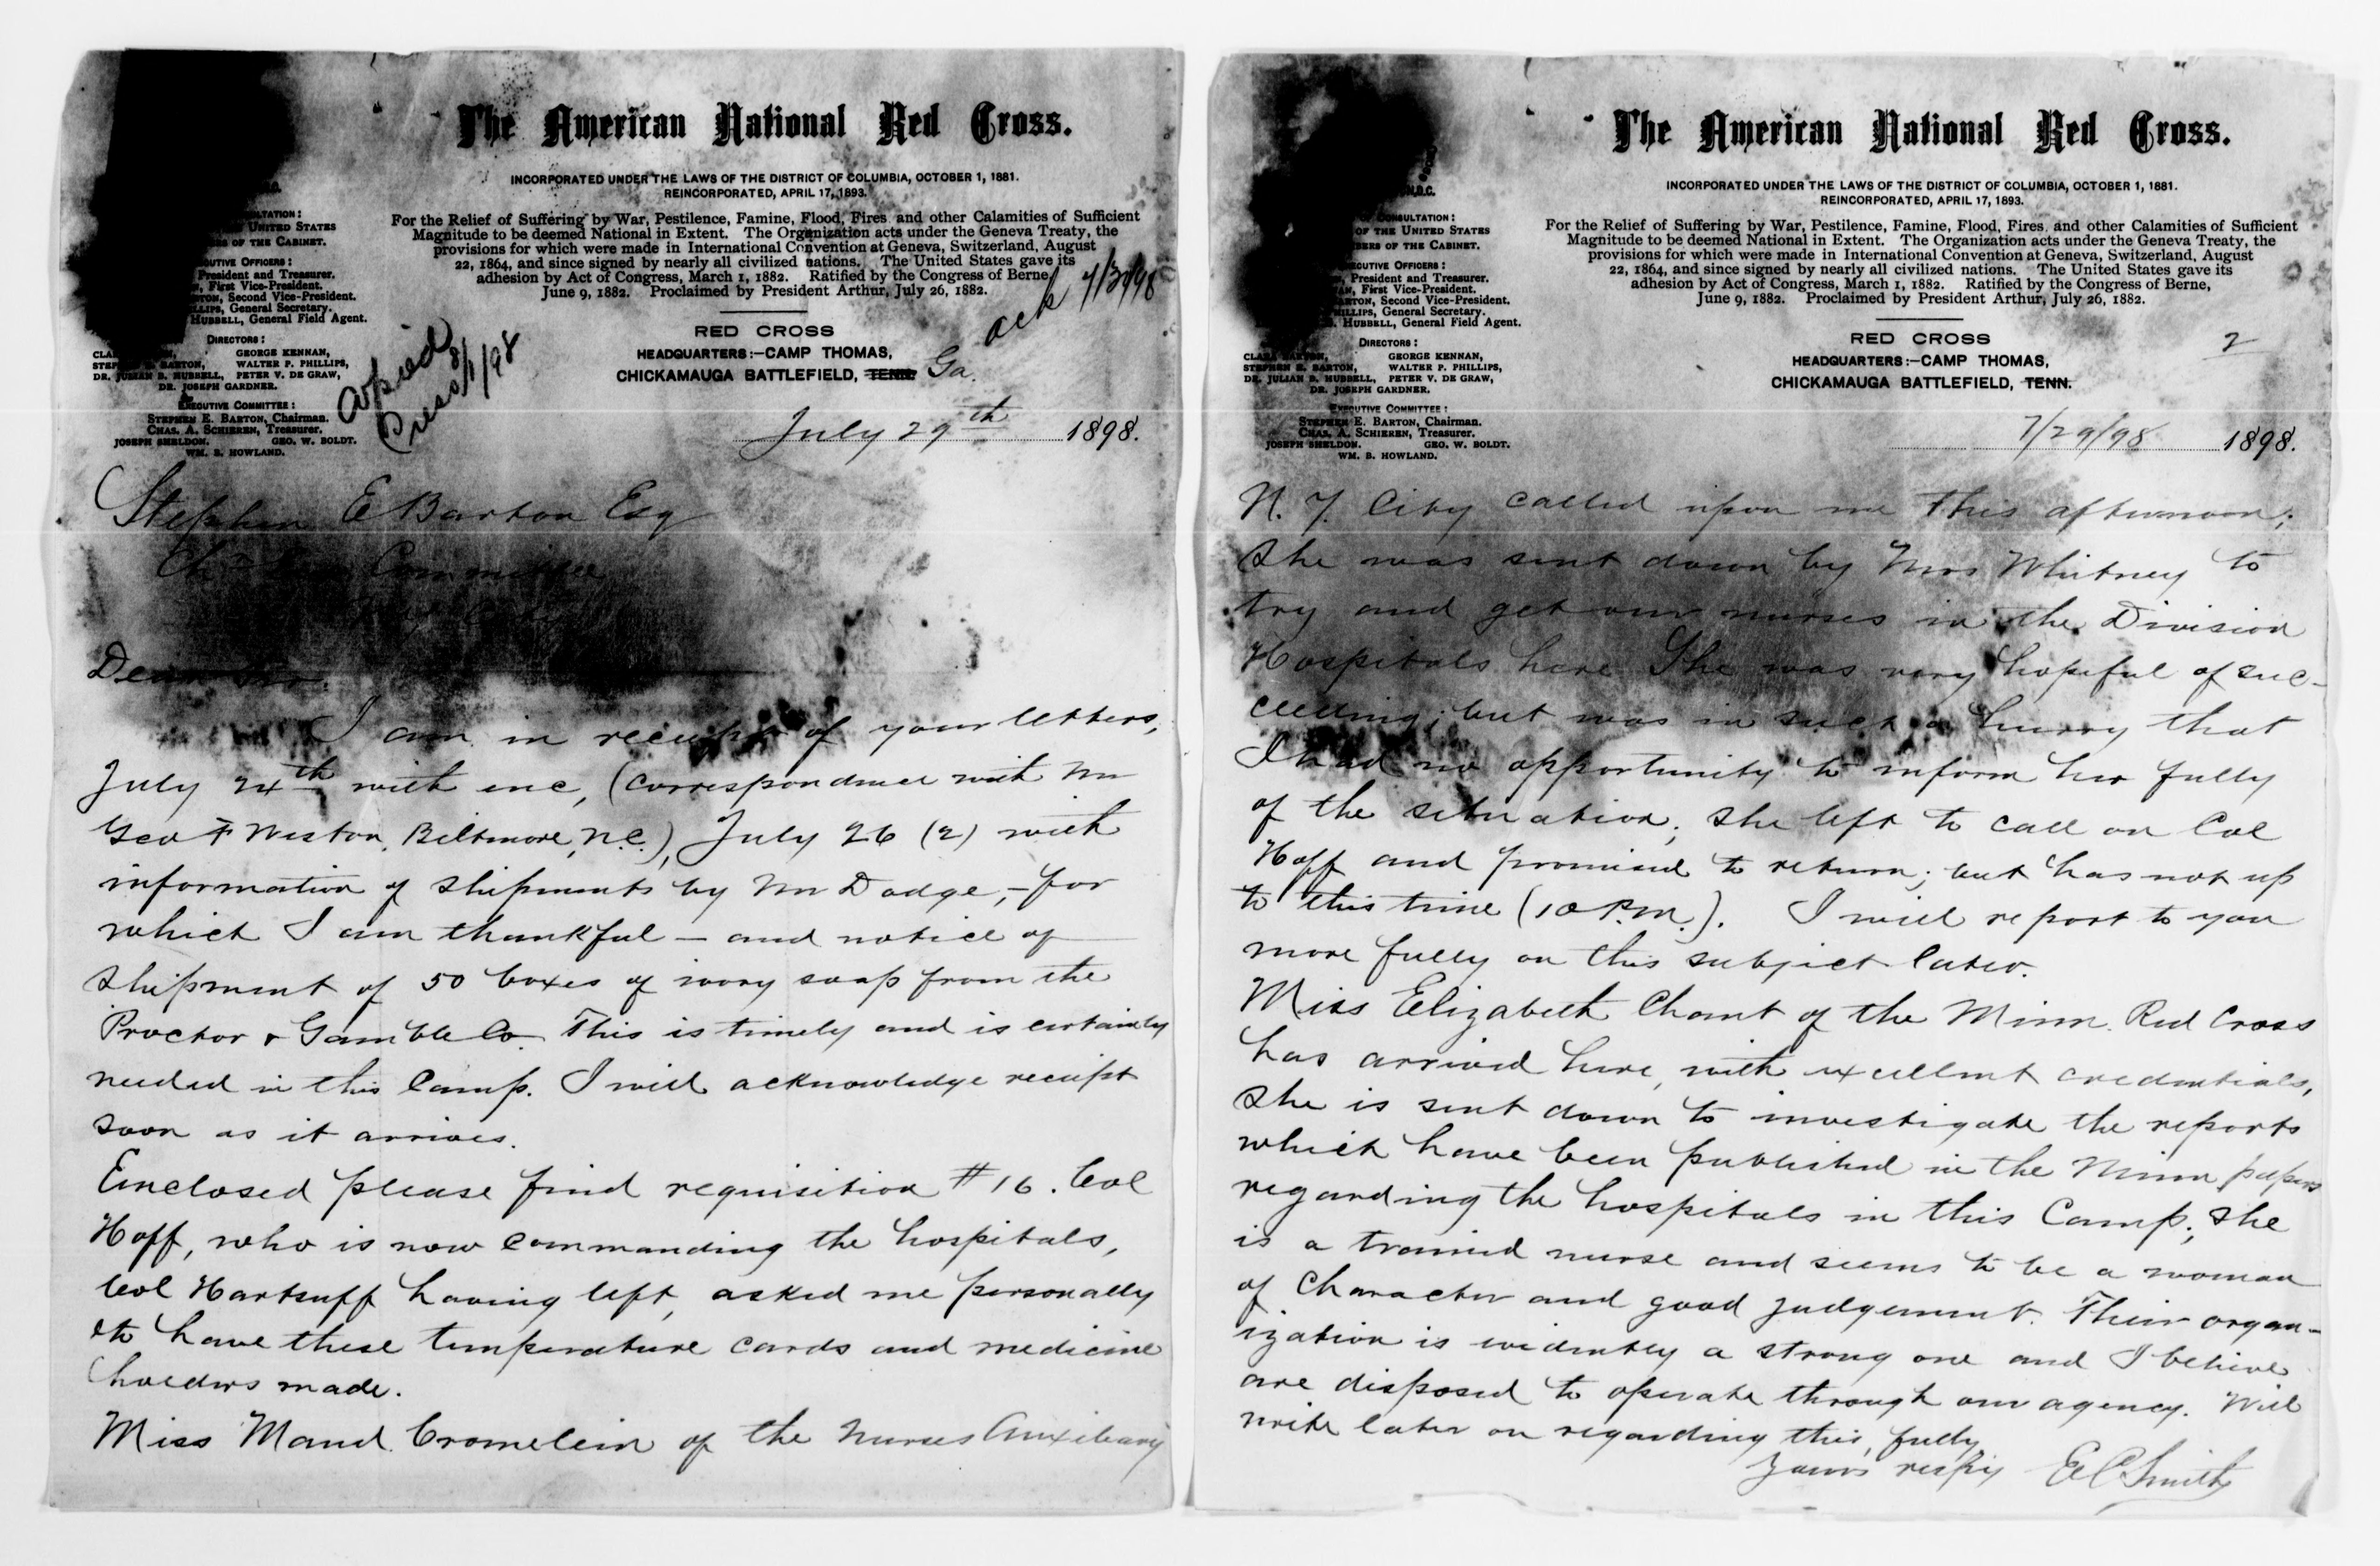 The American National Red Cross.
INCORPORATED UNDER THE LAWS OF THE DISTRICT OF COLUMBIA, OCTOBER 1, 1881.
REINCORPORATED, APRIL 17, 1893.
For the Relief of Suffering by War, Pestilence, Famine, Flood, Fires and other Calamities of Sufficient
Magnitude to be deemed National in Extent. The Organization acts under the Geneva Treaty, the
provisions for which were made in International Convention at Geneva, Switzerland, August
22, 1864, and since signed by nearly all civilized nations. The United States gave its
adhesion by Act of Congress, March 1, 1882. Ratified by the Congress of Berne,
June 9, 1882. Proclaimed by President Arthur, July 26, 1882.
UNITED STATES
OF THE CABINET.
OFFICERS:
President and Treasurer.
First Vice-President.
Second Vice-President.
General Secretary.
HUBBELL, General Field Agent.
DIRECTORS:
GEORGE KENNAN,
BARTON, WALTER P. PHILLIPS,
DR. JULIAN B. HUBBELL, PETER V. DE GRAW,
DR. JOSEPH GARDNER.
EXECUTIVE COMMITTEE:
STEPHEN E. BARTON, Chairman.
CHAS. A. SCHIEREN, Treasurer.
JOSEPH SHELDON. GEO. W. BOLDT.
WM. B. HOWLAND.
Copied
Press 8/1/98
ack 7/31/98
RED CROSS
HEADQUARTERS:—CAMP THOMAS,
CHICKAMAUGA BATTLEFIELD, TENN. Ga.
July 29th 1898.
Stephen E Barton Esq
Committee
Dear Sir
I am in receipt of your letters,
July 24th with enc, (correspondence with Mr
Geo F Weston, Biltmore, N.C.), July 26 (2) with
information of shipments by Mr Dodge, – for
which I am thankful – and notice of
shipment of 50 boxes of ivory soap from the
Proctor & Gamble Co. This is timely and is certainly
needed in this Camp. I will acknowledge receipt
soon as it arrives.
Enclosed please find requisition # 16. Col
Hoff, who is now commanding the hospitals,
Col Hartsuff having left, asked me personally
to have these temperature cards and medicine
holders made.
Miss Maud Cromelein of the Nurses Auxiliary
The American National Red Cross.
INCORPORATED UNDER THE LAWS OF THE DISTRICT OF COLUMBIA, OCTOBER 1, 1881.
REINCORPORATED, APRIL 17, 1893.
For the Relief of Suffering by War, Pestilence, Famine, Flood, Fires and other Calamities of Sufficient
Magnitude to be deemed National in Extent. The Organization acts under the Geneva Treaty, the
provisions for which were made in International Convention at Geneva, Switzerland, August
22, 1864, and since signed by nearly all civilized nations. The United States gave its
adhesion by Act of Congress, March 1, 1882. Ratified by the Congress of Berne,
June 9, 1882. Proclaimed by President Arthur, July 26, 1882.
CONSULTATION:
OF THE UNITED STATES
OF THE CABINET.
OFFICERS:
President and Treasurer.
First Vice-President.
BARTON, Second Vice-President.
PHILLIPS, General Secretary.
HUBBELL, General Field Agent.
DIRECTORS:
CLARA BARTON, GEORGE KENNAN,
STEPHEN E. BARTON, WALTER P. PHILLIPS,
DR. JULIAN B. HUBBELL, PETER V. DE GRAW,
DR. JOSEPH GARDNER.
EXECUTIVE COMMITTEE:
STEPHEN E. BARTON, Chairman.
CHAS. A. SCHIEREN, Treasurer.
JOSEPH SHELDON. GEO. W. BOLDT.
WM. B. HOWLAND.
2
RED CROSS
HEADQUARTERS:—CAMP THOMAS,
CHICKAMAUGA BATTLEFIELD, TENN.
7/29/98 1898.
N. Y. City called upon me this afternoon;
she was sent down by Mrs Whitney to
try and get our nurses in the Division
Hospitals here She was very hopeful of suc-
ceeding; but was in such a hurry that
I had no opportunity to inform her fully
of the situation; she left to call on Col
Hoff and promised to return; but has not up
to this time (10 P.M.). I will report to you
more fully on this subject later.
Miss Elizabeth Chant of the Minn. Red Cross
has arrived here, with excellent credentials,
she is sent down to investigate the reports
which have been published in the Minn papers
regarding the hospitals in this Camp; she
is a trained nurse and seems to be a woman
of Character and good judgement. Their organ-
ization is evidently a strong one and I believe
are disposed to operate through our agency. Will
write later on regarding this, fully
Yours respy E C Smith